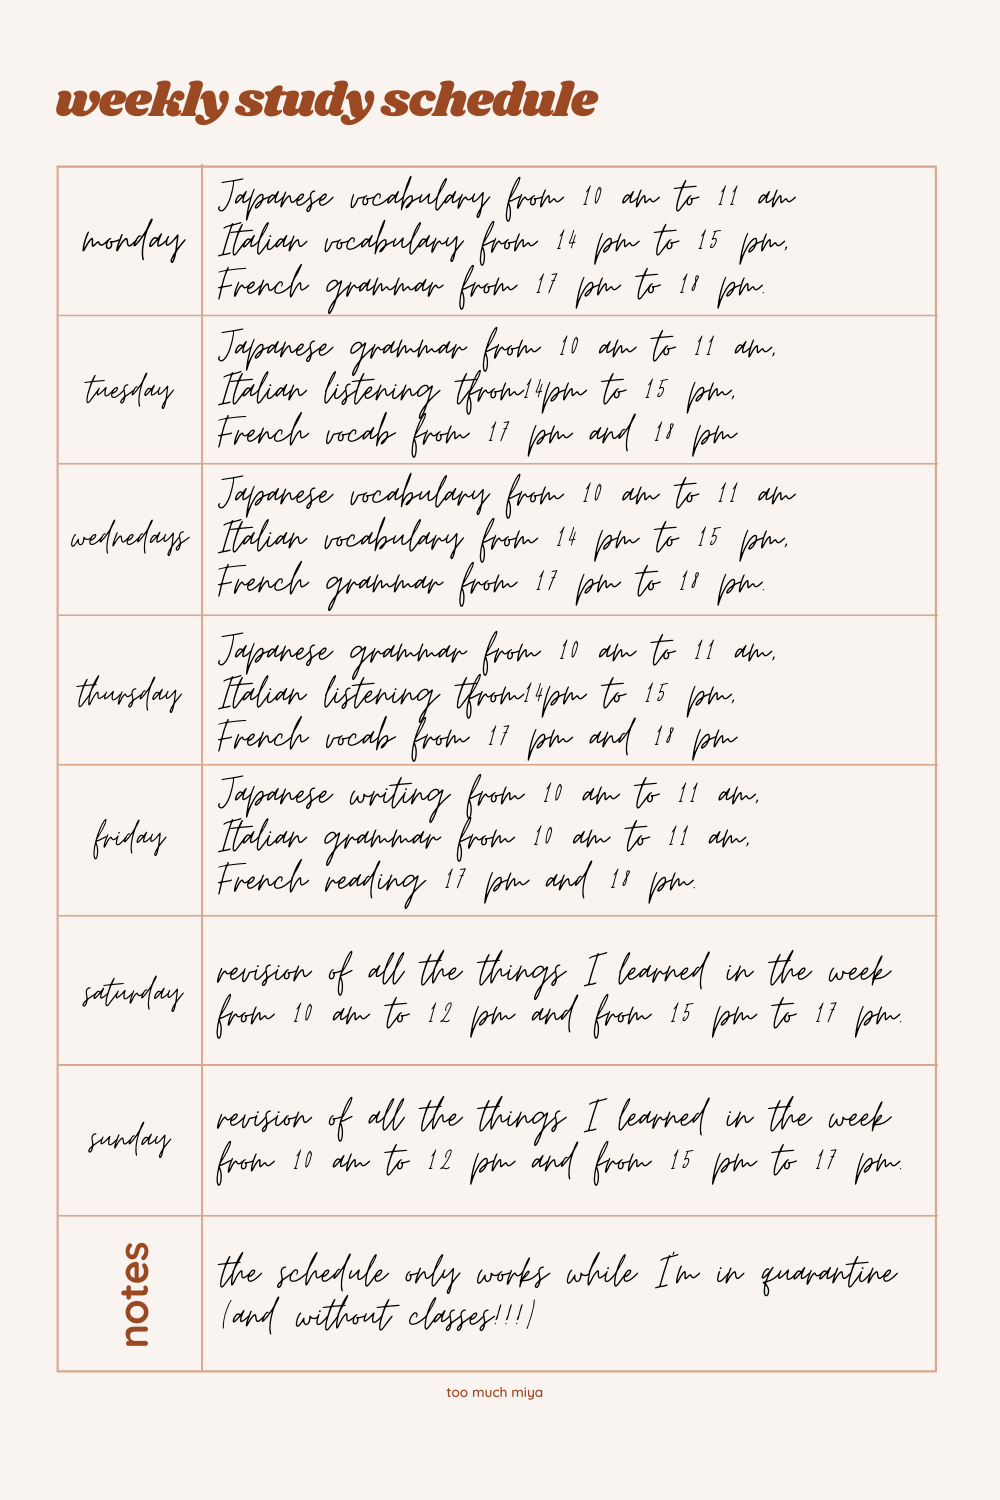 weekly study schedule
monday
Japanese vocabulary from 10 am to 11 am
Italian vocabulary from 14 pm to 15 pm,
French grammar from 17 pm to 18 pm.
tuesday
Japanese grammar from 10 am to 11 am,
Italian listening tfrom14pm to 15 pm,
French vocab from 17 pm and 18 pm
wednedays
Japanese vocabulary from 10 am to 11 am
Italian vocabulary from 14 pm to 15 pm,
French grammar from 17 pm to 18 pm.
thursday
Japanese grammar from 10 am to 11 am,
Italian listening tfrom14pm to 15 pm,
French vocab from 17 pm and 18 pm
friday
Japanese writing from 10 am to 11 am,
Italian grammar from 10 am to 11 am,
French reading 17 pm and 18 pm.
saturday
revision of all the things I learned in the week
from 10 am to 12 pm and from 15 pm to 17 pm.
sunday
revision of all the things I learned in the week
from 10 am to 12 pm and from 15 pm to 17 pm.
notes
the schedule only works while I'm in quarantine
(and without classes!!!)
too much miya